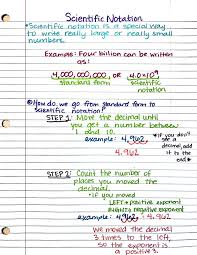 Scientific Notation
*Scientific notation is a special way
to write really large or really small
numbers.
Example: Four billion can be written
as:
4,000,000,000, or 4.0×10⁹
standard form scientific notation
*How do we go from standard form to
scientific notation?
STEP 1: Move the decimal until
you get a number between
1 and 10.
*If you don't
see a
decimal, add
it to the
end!*
example: 4,962.
4.962
STEP 2: Count the number of
places you moved the
decimal.
*If you move
LEFT = positive exponent
= negative exponent
example: 4,962.
4.962
We moved the decimal
3 times to the left,
so the exponent
is a positive 3.